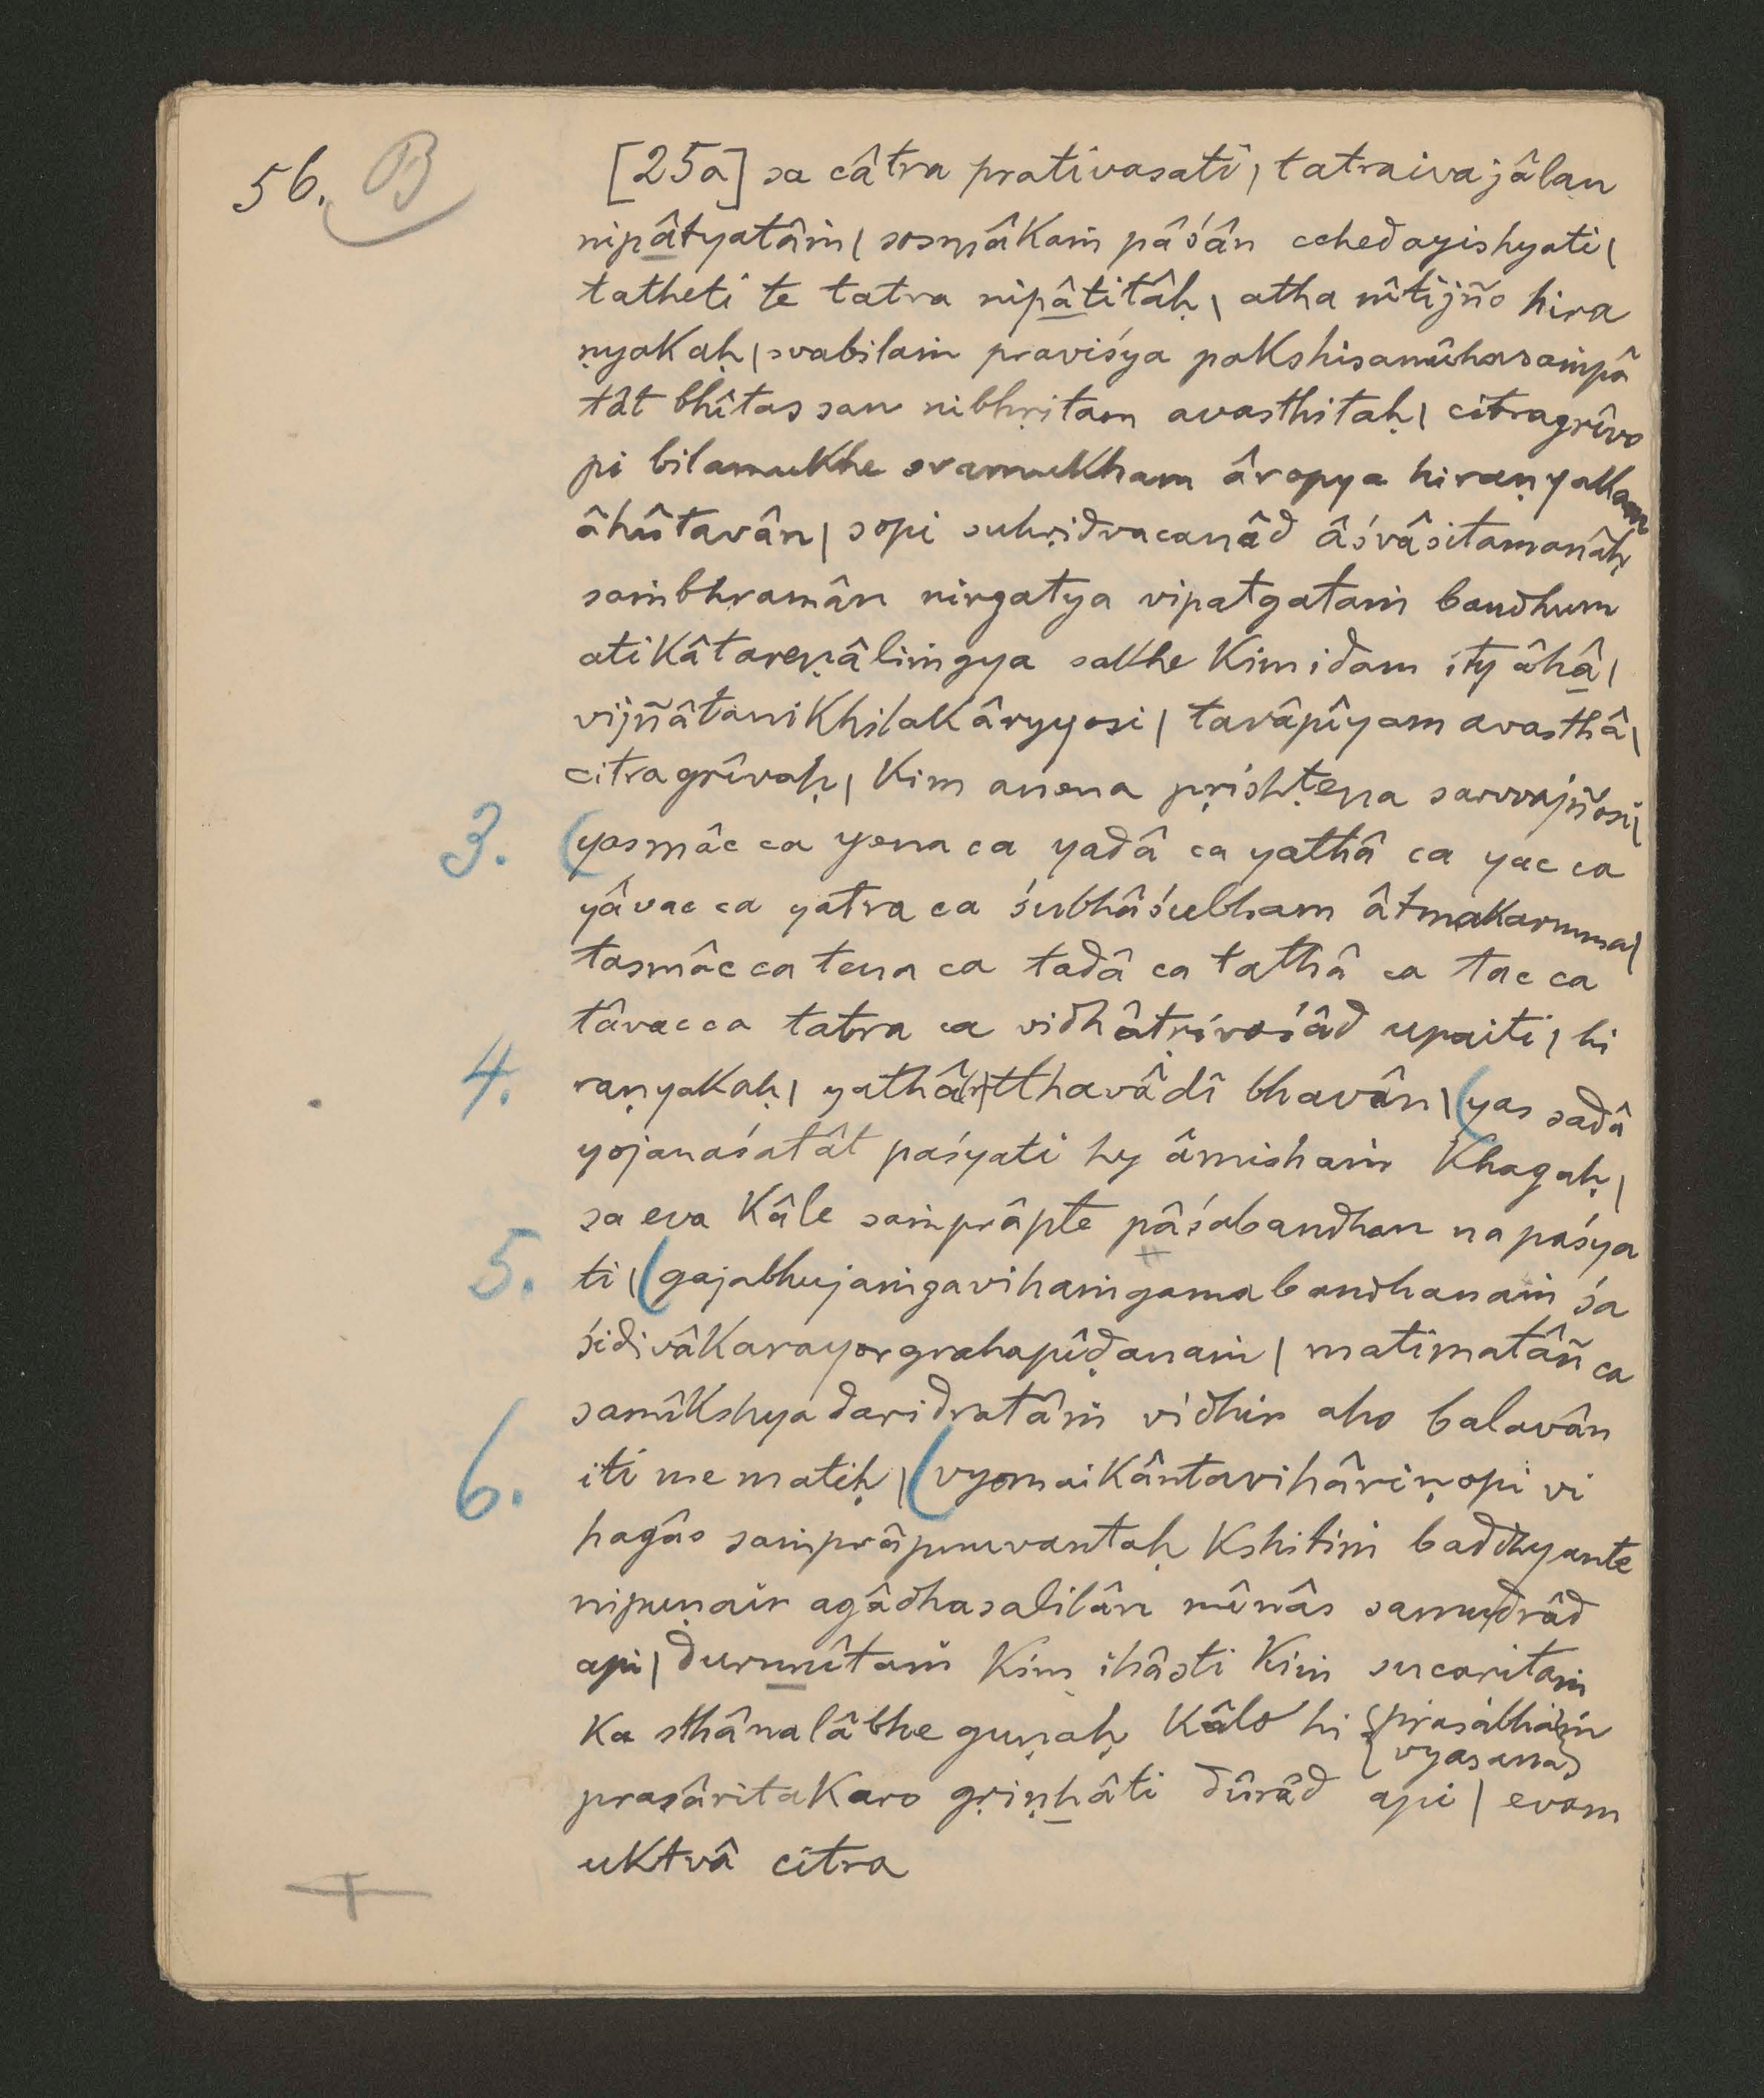 56. B
[25a] sa câtra prativasati | tatraiva jâlan
nipâtyatâṁ | sosmâkaṁ pâśân cchedayishyati |
tatheti te tatra nipâtitâḥ | atha nîtijño hira
ṇyakaḥ | svabilaṁ praviśya pakshisamûhasaṁpâ
tât bhîtas san nibhṛitam avasthitaḥ | citragrîvo
pi bilamukhe svamukham âropya hiraṇyakam
âhûtavân | sopi suhṛidvacanâd âśvâsitamanâḥ
saṁbhramân nirgatya vipatgataṁ bandhum
atikâtareṇâliṁgya sakhe kim idam ity âhâ |
vijñâtanikhilakâryyosi | tavâpîyam avasthâ |
citragrîvaḥ | kim anena pṛishṭena sarvvajñosi |
3. (yasmâc ca yena ca yadâ ca yathâ ca yac ca
yâvac ca yatra ca śubhâśubham âtmakarmma |
tasmâc ca tena ca tadâ ca tathâ ca tac ca
tâvac ca tatra ca vidhâtṛivaśâd upaiti | hi
4. raṇyakaḥ | yathâ(r)tthavâdî bhavân | (yas sadâ
yojanaśatât paśyati hy âmishaṁ khagaḥ |
sa eva kâle saṁprâpte pâśabandhan na paśya
5. ti | (gajabhujaṁgavihaṁgamabandhanaṁ śa
śidivâkarayor grahapîḍanaṁ | matimatâñ ca
samîkshya daridratâṁ vidhir aho balavân
6. iti me matiḥ | (vyomaikântavihâriṇopi vi
hagâs saṁprâpnuvantaḥ kshitiṁ baddhyante
nipuṇair agâdhasalilân mînâs samudrâd
api | durnnîtaṁ kim ihâsti kiṁ sucaritaṁ
ka sthânalâbhe guṇaḥ kâlo hi {prasabhaṁ
{vyasana}
prasâritakaro gṛiṇhâti dûrâd api | evam
uktvâ citra